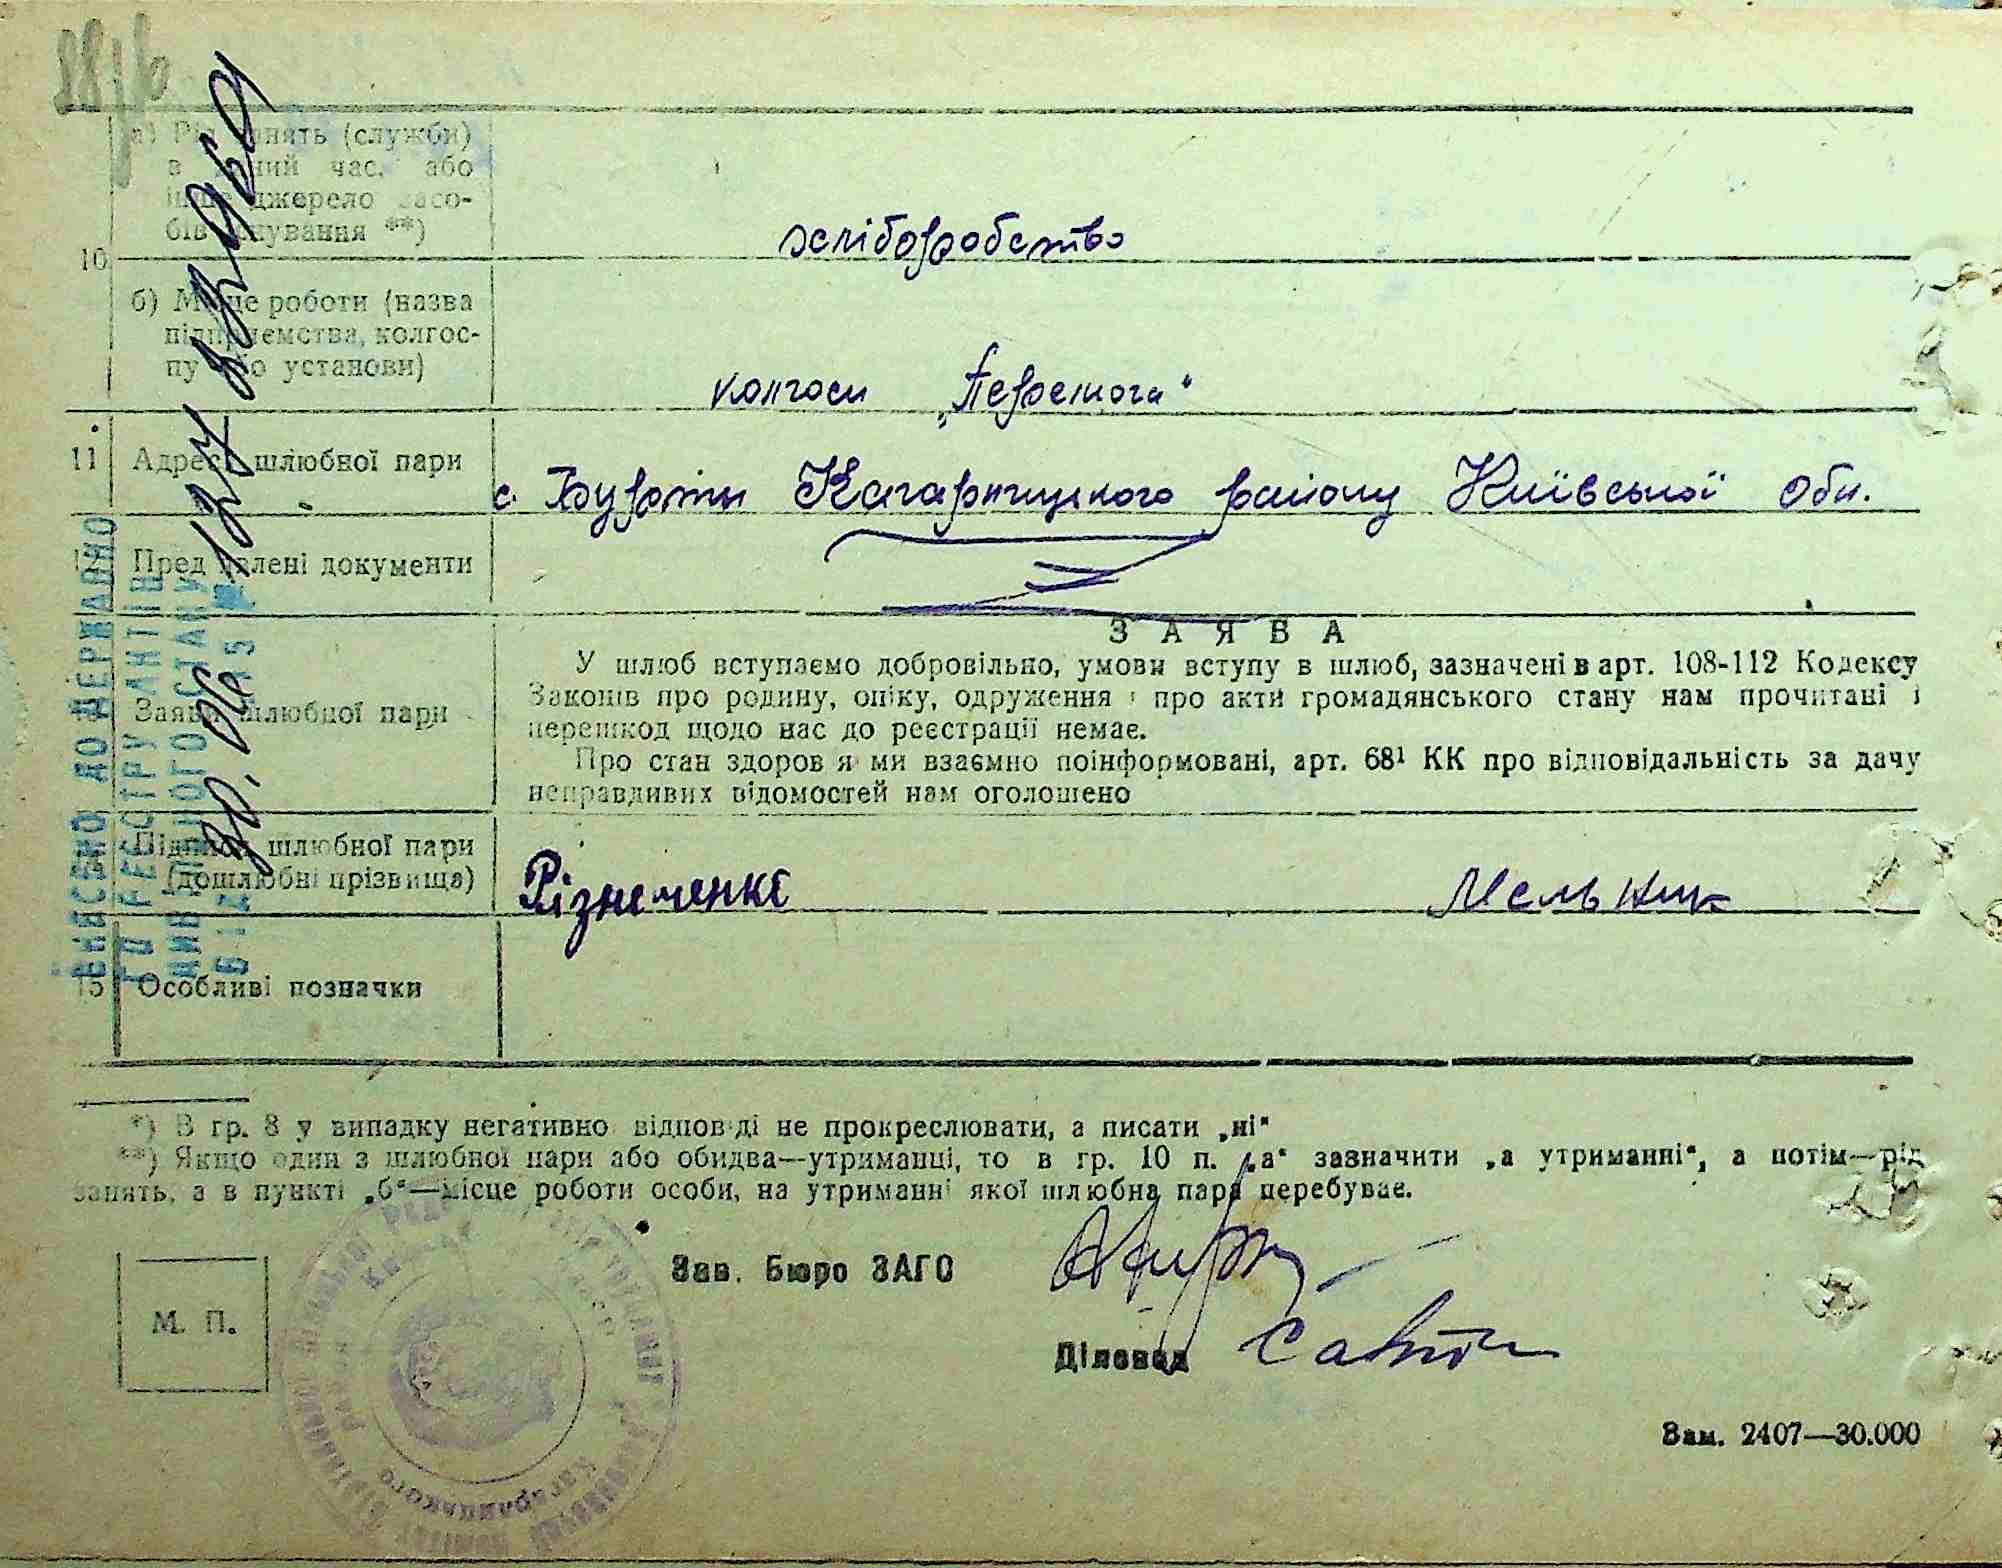 а) Рід занять (служби)
в даний час, або
інше джерело засо-
бів існування **)
хліборобство
10
б) Місце роботи (назва
підприємства, колгос-
пу або установи)
колгосп „Перемога"
11 Адреса шлюбної пари
с. Бурти Кагарлицького району Київської обл.
12 Пред'явлені документи
ЗАЯВА
У шлюб вступаємо добровільно, умови вступу в шлюб, зазначені в арт. 108-112 Кодексу
Законів про родину, опіку, одруження і про акти громадянського стану нам прочитані і
перешкод щодо нас до реєстрації немає.
Заява шлюбної пари
Про стан здоров'я ми взаємно поінформовані, арт. 68¹ КК про відповідальність за дачу
неправдивих відомостей нам оголошено
Підписи шлюбної пари
(дошлюбні прізвища)
Мельник
15 Особливі позначки
ВНЕСЕНО ДО ДЕРЖАВНО
ГО РЕЄСТРУ АКТІВ
ЦИВІЛЬНОГО СТАНУ
*) В гр. 8 у випадку негативно відповіді не прокреслювати, а писати „ні"
**) Якщо один з шлюбної пари або обидва—утриманці, то в гр. 10 п. „а" зазначити „а утриманні", а потім—рід
занять, а в пункті „б"—місце роботи особи, на утриманні якої шлюбна пара перебуває.
Зав. Бюро ЗАГС
М. П.
Діловод
Зам. 2407—30.000